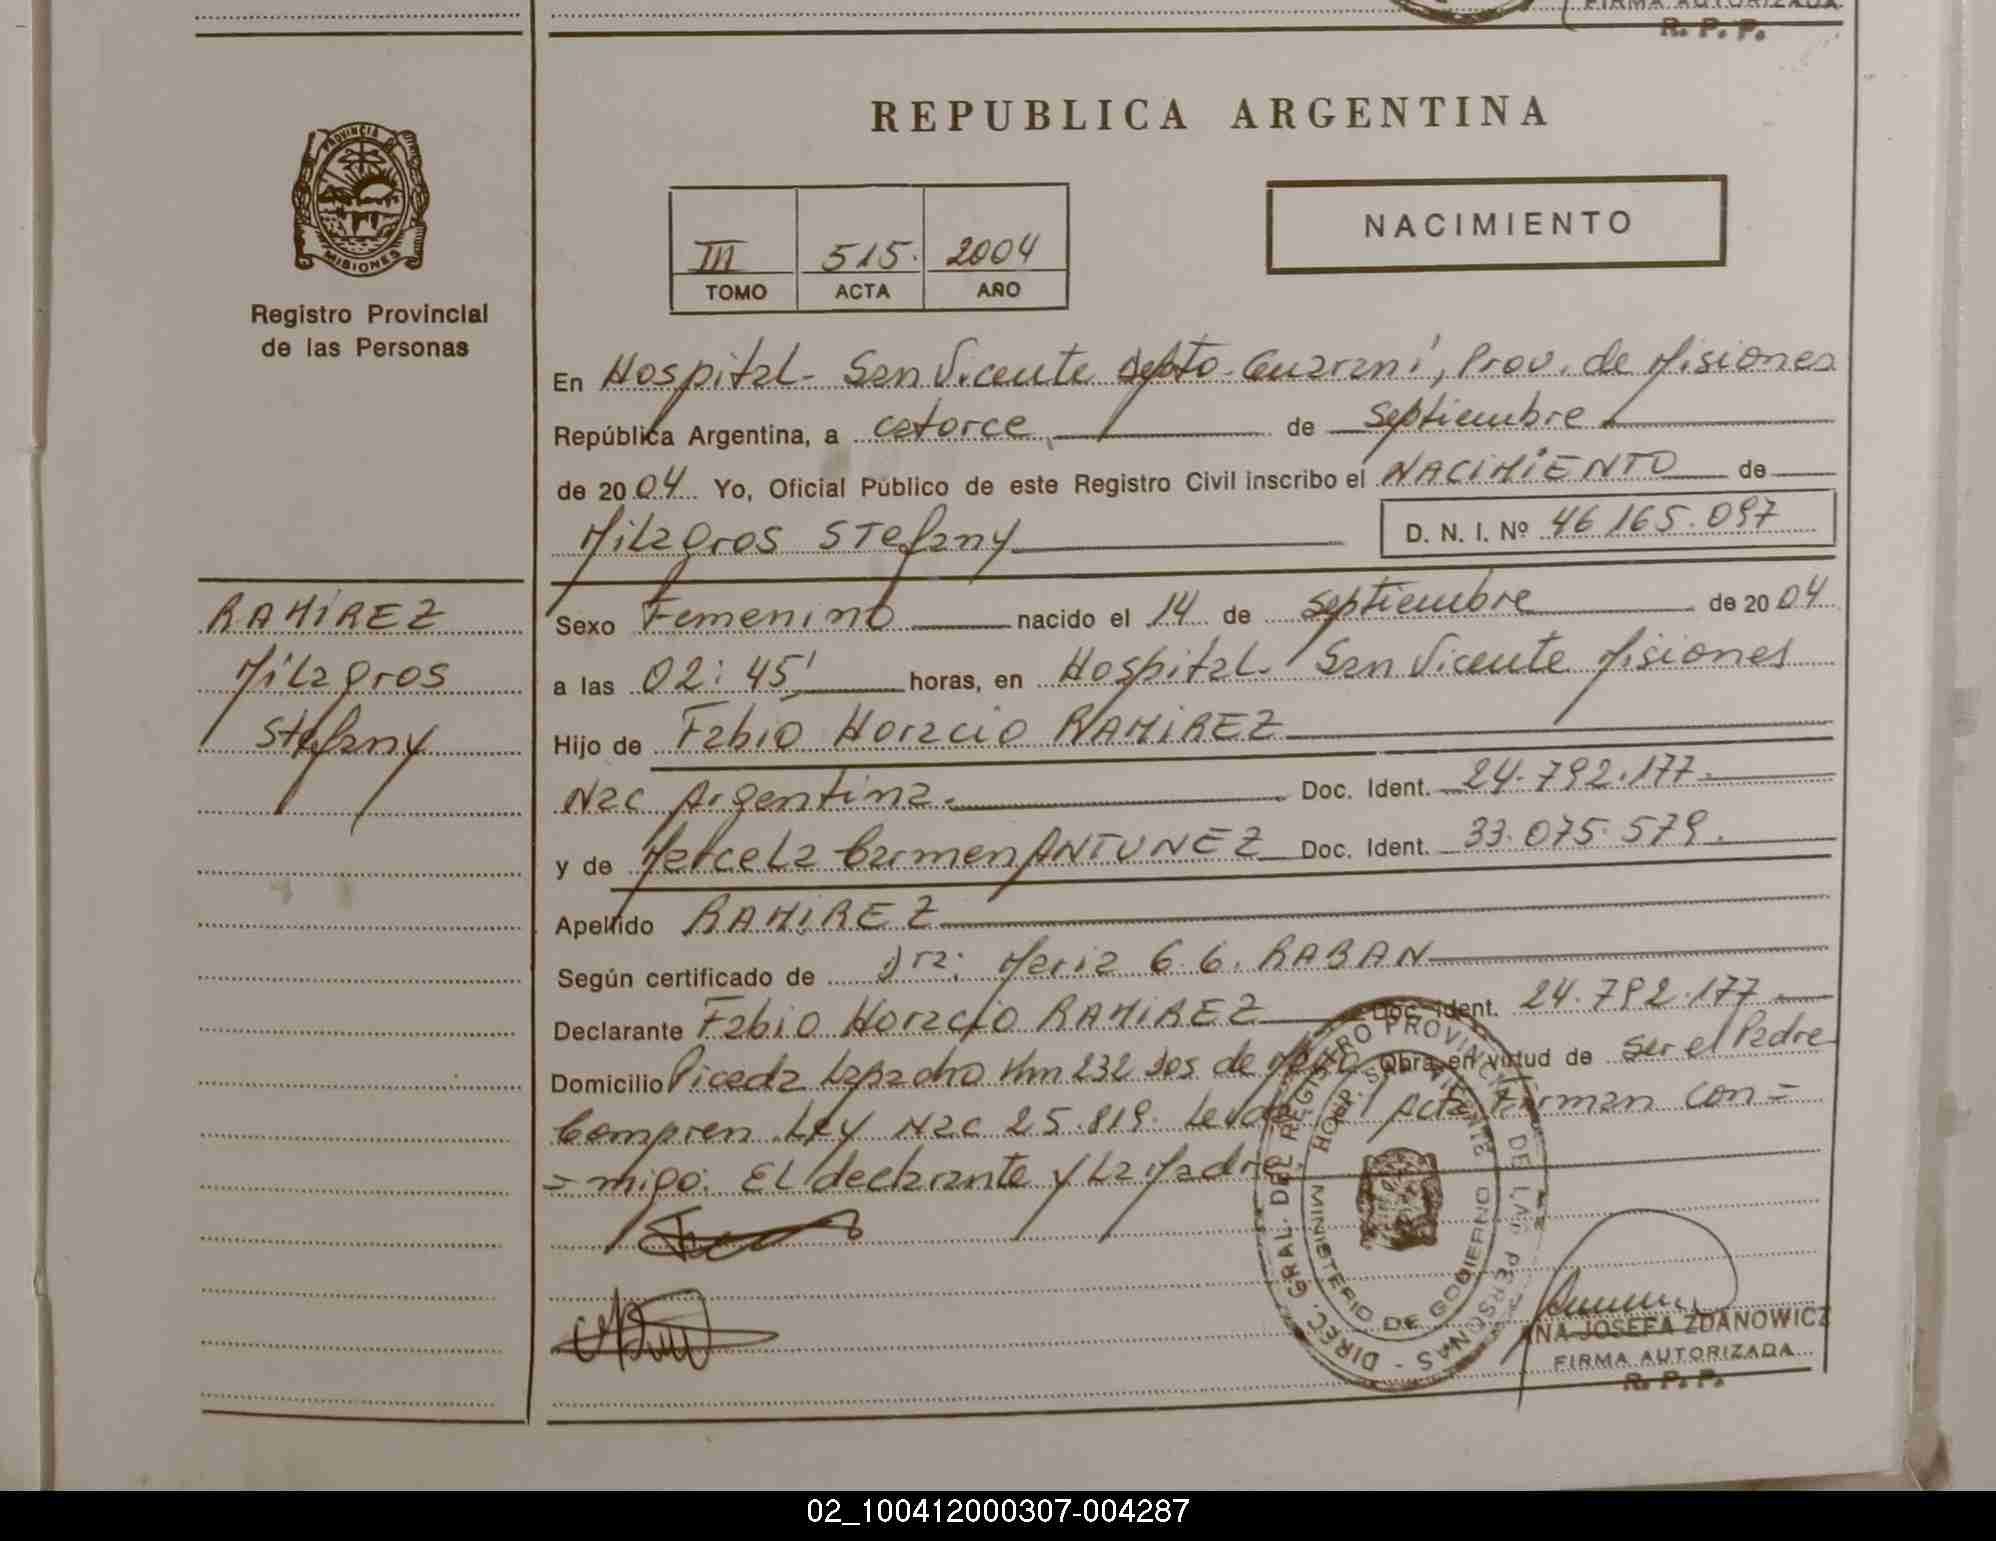 FIRMA AUTORIZADA
R. P. P.
PROVINCIA DE
MISIONES
Registro Provincial
de las Personas
REPUBLICA ARGENTINA
NACIMIENTO
III 515. 2004
TOMO ACTA AÑO
En Hospital - San Vicente Depto - Guaraní, Prov. de Misiones
República Argentina, a catorce de Septiembre
de 2004 Yo, Oficial Público de este Registro Civil inscribo el NACIMIENTO de
Milagros Stefany D. N. I. Nº 46 165.097
RAMIREZ
Milagros
Stefany
Sexo Femenino nacido el 14 de Septiembre de 2004
a las 02:45' horas, en Hospital - San Vicente Misiones
Hijo de Fabio Horacio RAMIREZ
Nac Argentina. Doc. Ident. 24.792.177.
y de Marcela Carmen ANTUNEZ Doc. Ident. 33.075.579.
Apellido RAMIREZ
Según certificado de Dra: Maria G. G. RABAN
Declarante Fabio Horacio RAMIREZ Doc. Ident. 24.792.177
Domicilio Picada Lapacho Km 232 Dos de Mayo Obra en virtud de ser el Padre
Compren Ley Nac 25.819. Leída el Acta Firman con=
=migo: El declarante y La Madre
DIREC. GRAL. DEL REGISTRO PROVINCIAL DE LAS PERSONAS -
HOSP. SAN VICENTE
MINISTERIO DE GOBIERNO
ANA JOSEFA ZDANOWICZ
FIRMA AUTORIZADA
R. P. P.
02_100412000307-004287